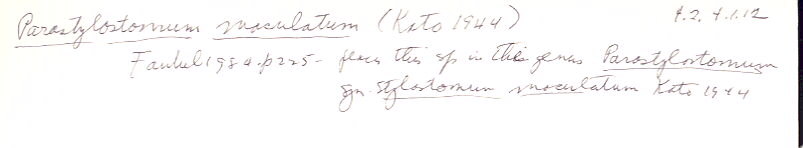 Parastylostomum maculatum (Kato 1944) 4.2.4.1.12
Faubel 1984.p225- places this sp in this genus Parastylostomum
syn. Stylostomum maculatum Kato 1944